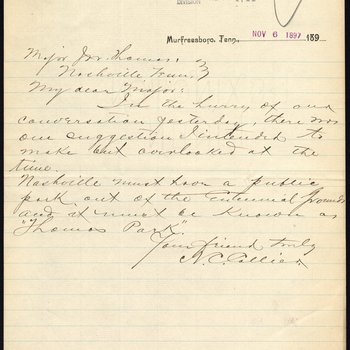 DIVISION
Murfreesboro, Tenn., NOV 6 1897 189
Major Jno. Thomas,
Nashville, Tenn.
My dear Major:
In the hurry of our
conversation yesterday, there was
one suggestion I intended to
make but overlooked at the
time.
Nashville must have a public
park out of the Centennial Grounds
and it must be known as
"Thomas Park".
Your friend truly
N.C. Collier